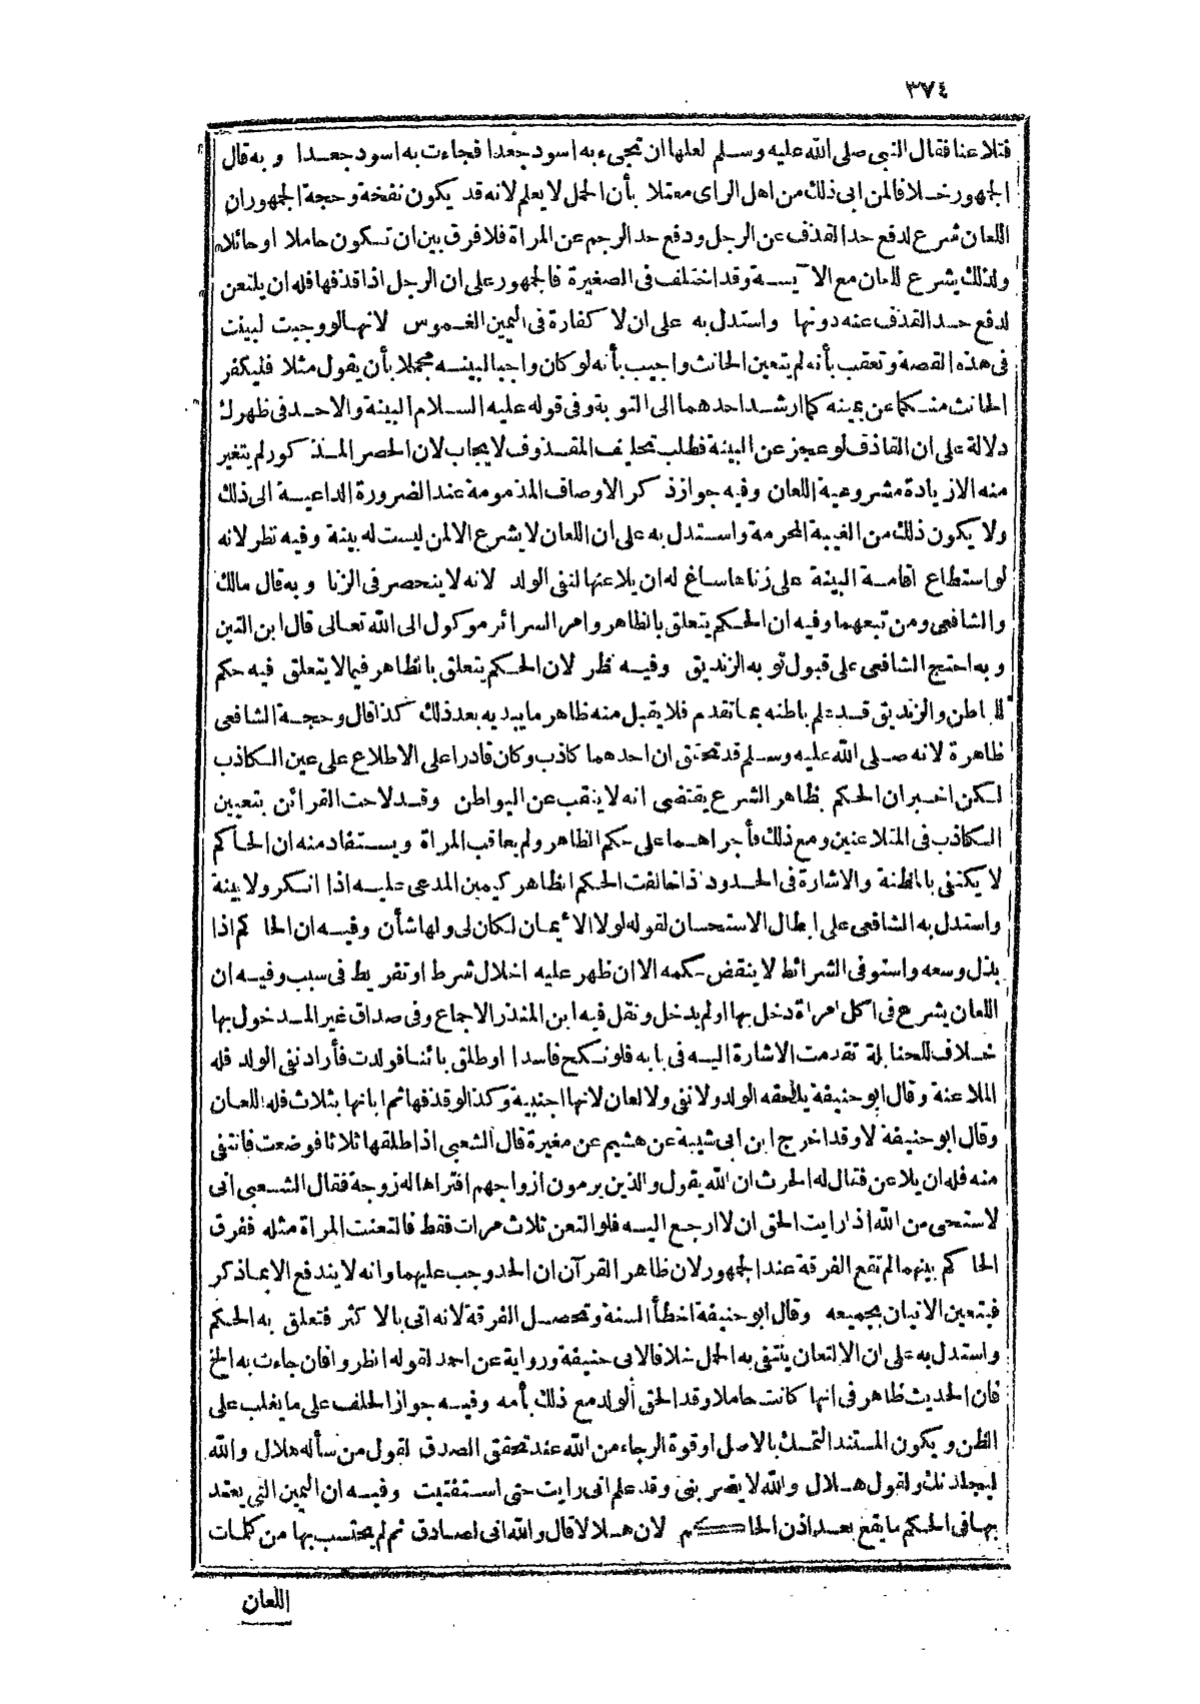 ٣٧٤
فتلاعنا فقال النبى صلى الله عليه وسلم لعلها ان تجىء به اسود جعدا فجاءت به اسود جعدا وبه قال
الجمهور خلافا لمن ابى ذلك من اهل الراى معتلا بأن الحمل لا يعلم لانه قد يكون نفخة وحجة الجمهور ان
اللعان شرع لدفع حد القذف عن الرجل ودفع حد الرجم عن المراة فلا فرق بين ان تكون حاملا او حائلا
ولذلك يشرع للعان مع الآيسة وقد اختلف فى الصغيرة فالجمهور على ان الرجل اذا قذفها فله ان يلتعن
لدفع حد القذف عنه دونها واستدل به على ان لا كفارة فى اليمين الغموس لانها لو وجبت لبينت
فى هذه القصة وتعقب بأنه لم يتعين الحانث واجيب بأنه لو كان واجبا لبينه مجملا بأن يقول مثلا فليكفر
الحانث منكما عن يمينه كما ارشد احدهما الى التوبة وفى قوله عليه السلام البينة والا حد فى ظهرك
دلالة على ان القاذف لو عجز عن البينة فطلب تحليف المقذوف لا يجاب لان الحصر المذكور لم يتغير
منه الا زيادة مشروعية اللعان وفيه جواز ذكر الاوصاف المذمومة عند الضرورة الداعية الى ذلك
ولا يكون ذلك من الغيبة المحرمة واستدل به على ان اللعان لا يشرع الا لمن ليست له بينة وفيه نظر لانه
لو استطاع اقامة البينة على زناها ساغ له ان يلاعنها لنفى الولد لانه لا ينحصر فى الزنا وبه قال مالك
والشافعى ومن تبعهما وفيه ان الحكم يتعلق بالظاهر وامر السرائر موكول الى الله تعالى قال ابن التين
وبه احتج الشافعى على قبول توبه الزنديق وفيه نظر لان الحكم يتعلق بالظاهر فيما لا يتعلق فيه حكم
للباطن والزنديق قد علم باطنه بما تقدم فلا يقبل منه ظاهر ما يبديه بعد ذلك كذا قال وحجة الشافعى
ظاهرة لانه صلى الله عليه وسلم قد تحقق ان احدهما كاذب وكان قادرا على الاطلاع على عين الكاذب
لكن اخبر ان الحكم بظاهر الشرع يقتضى انه لا ينقب عن البواطن وقد لاحت القرائن بتعيين
الكاذب فى المتلاعنين ومع ذلك فأجراهما على حكم الظاهر ولم يعاقب المراة ويستفاد منه ان الحاكم
لا يكتفى بالمظنة والاشارة فى الحدود اذا خالفت الحكم الظاهر كيمين المدعى عليه اذا انكر ولا بينة
واستدل به الشافعى على ابطال الاستحسان لقوله لولا الأيمان لكان لى ولها شأن وفيه ان الحاكم اذا
بذل وسعه واستوفى الشرائط لا ينقض حكمه الا ان ظهر عليه اخلال شرط او تفريط فى سبب وفيه ان
اللعان يشرع فى كل امراة دخل بها او لم يدخل ونقل فيه ابن المنذر الاجماع وفى صداق غير المدخول بها
خلاف للحنابلة تقدمت الاشارة اليه فى بابه فلو نكح فاسدا او طلق بائنا فولدت فأراد نفى الولد فله
الملاعنة وقال ابو حنيفة يلحقه الولد ولا نفى ولا لعان لانها اجنبية وكذا لو قذفها ثم ابانها بثلاث فله اللعان
وقال ابو حنيفة لا وقد اخرج ابن ابى شيبة عن هشيم عن مغيرة قال الشعبى اذا طلقها ثلاثا فوضعت فانتفى
منه فله ان يلاعن فقال له الحرث ان الله يقول والذين يرمون ازواجهم افتراها له زوجة فقال الشعبى انى
لاستحى من الله اذا رايت الحق ان لا ارجع اليه فلو التعن ثلاث مرات فقط فالتعنت المراة مثله ففرق
الحاكم بينهما لم تقع الفرقة عند الجمهور لان ظاهر القرآن ان الحد وجب عليهما وانه لا يندفع الا بما ذكر
فيتعين الاتيان بجميعه وقال ابو حنيفة اخطأ السنة وتحصل الفرقة لانه اتى بالاكثر فتعلق به الحكم
واستدل به على ان الالتعان ينتفى به الحمل خلافا لابى حنيفة ورواية عن احمد لقوله انظروا فان جاءت به الخ
فان الحديث ظاهر فى انها كانت حاملا وقد الحق الولد مع ذلك بأمه وفيه جواز الحلف على ما يغلب على
الظن ويكون المستند التمسك بالاصل او قوة الرجاء من الله عند تحقق الصدق لقول من سأله هلال والله
ليجلدنك ولقول هلال والله لا يضربنى وقد علم انى رايت حتى استفتيت وفيه ان اليمين التى يعتد
بها فى الحكم ما يقع بعد اذن الحاكم لان هلالا قال والله انى لصادق ثم لم يحتسب بها من كلمات
اللعان